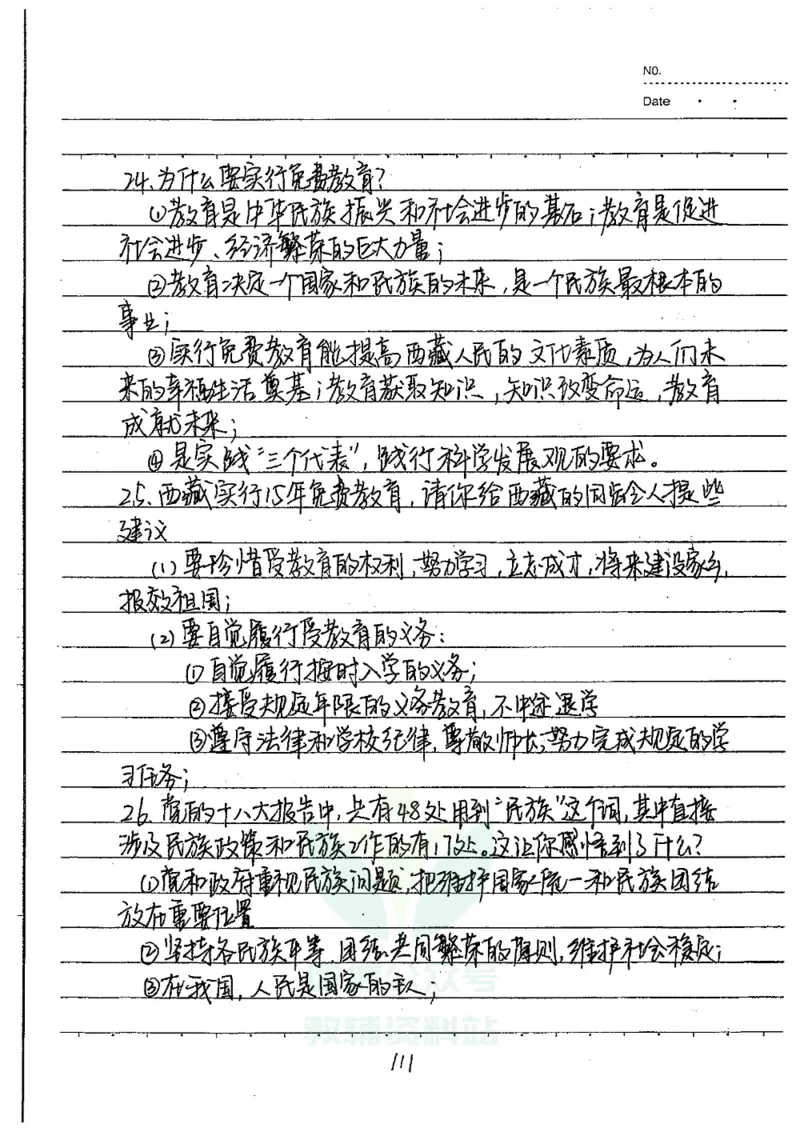 NO.
Date
24.为什么要实行免费教育?
①教育是中华民族振兴和社会进步的基石;教育是促进
社会进步、经济繁荣的巨大力量;
②教育决定一个国家和民族的未来,是一个民族最根本的
事业;
③实行免费教育能提高西藏人民的文化素质,为人们未
来的幸福生活奠基;教育获取知识,知识改变命运,教育
成就未来;
④是实践“三个代表”,践行科学发展观的要求。
25.西藏实行15年免费教育,请你给西藏的同龄人提些
建议
(1)要珍惜受教育的权利,努力学习,立志成才,将来建设家乡,
报效祖国;
(2)要自觉履行受教育的义务:
①自觉履行按时入学的义务;
②接受规定年限的义务教育,不中途退学
③遵守法律和学校纪律,尊敬师长,努力完成规定的学
习任务;
26.党的十八大报告中,共有48处用到“民族”这个词,其中直接
涉及民族政策和民族工作的有17处。这让你感悟到了什么?
①党和政府重视民族问题,把维护国家统一和民族团结
放在重要位置
②坚持各民族平等、团结、共同繁荣的原则,维护社会稳定;
③在我国,人民是国家的主人;
教辅资料站
111